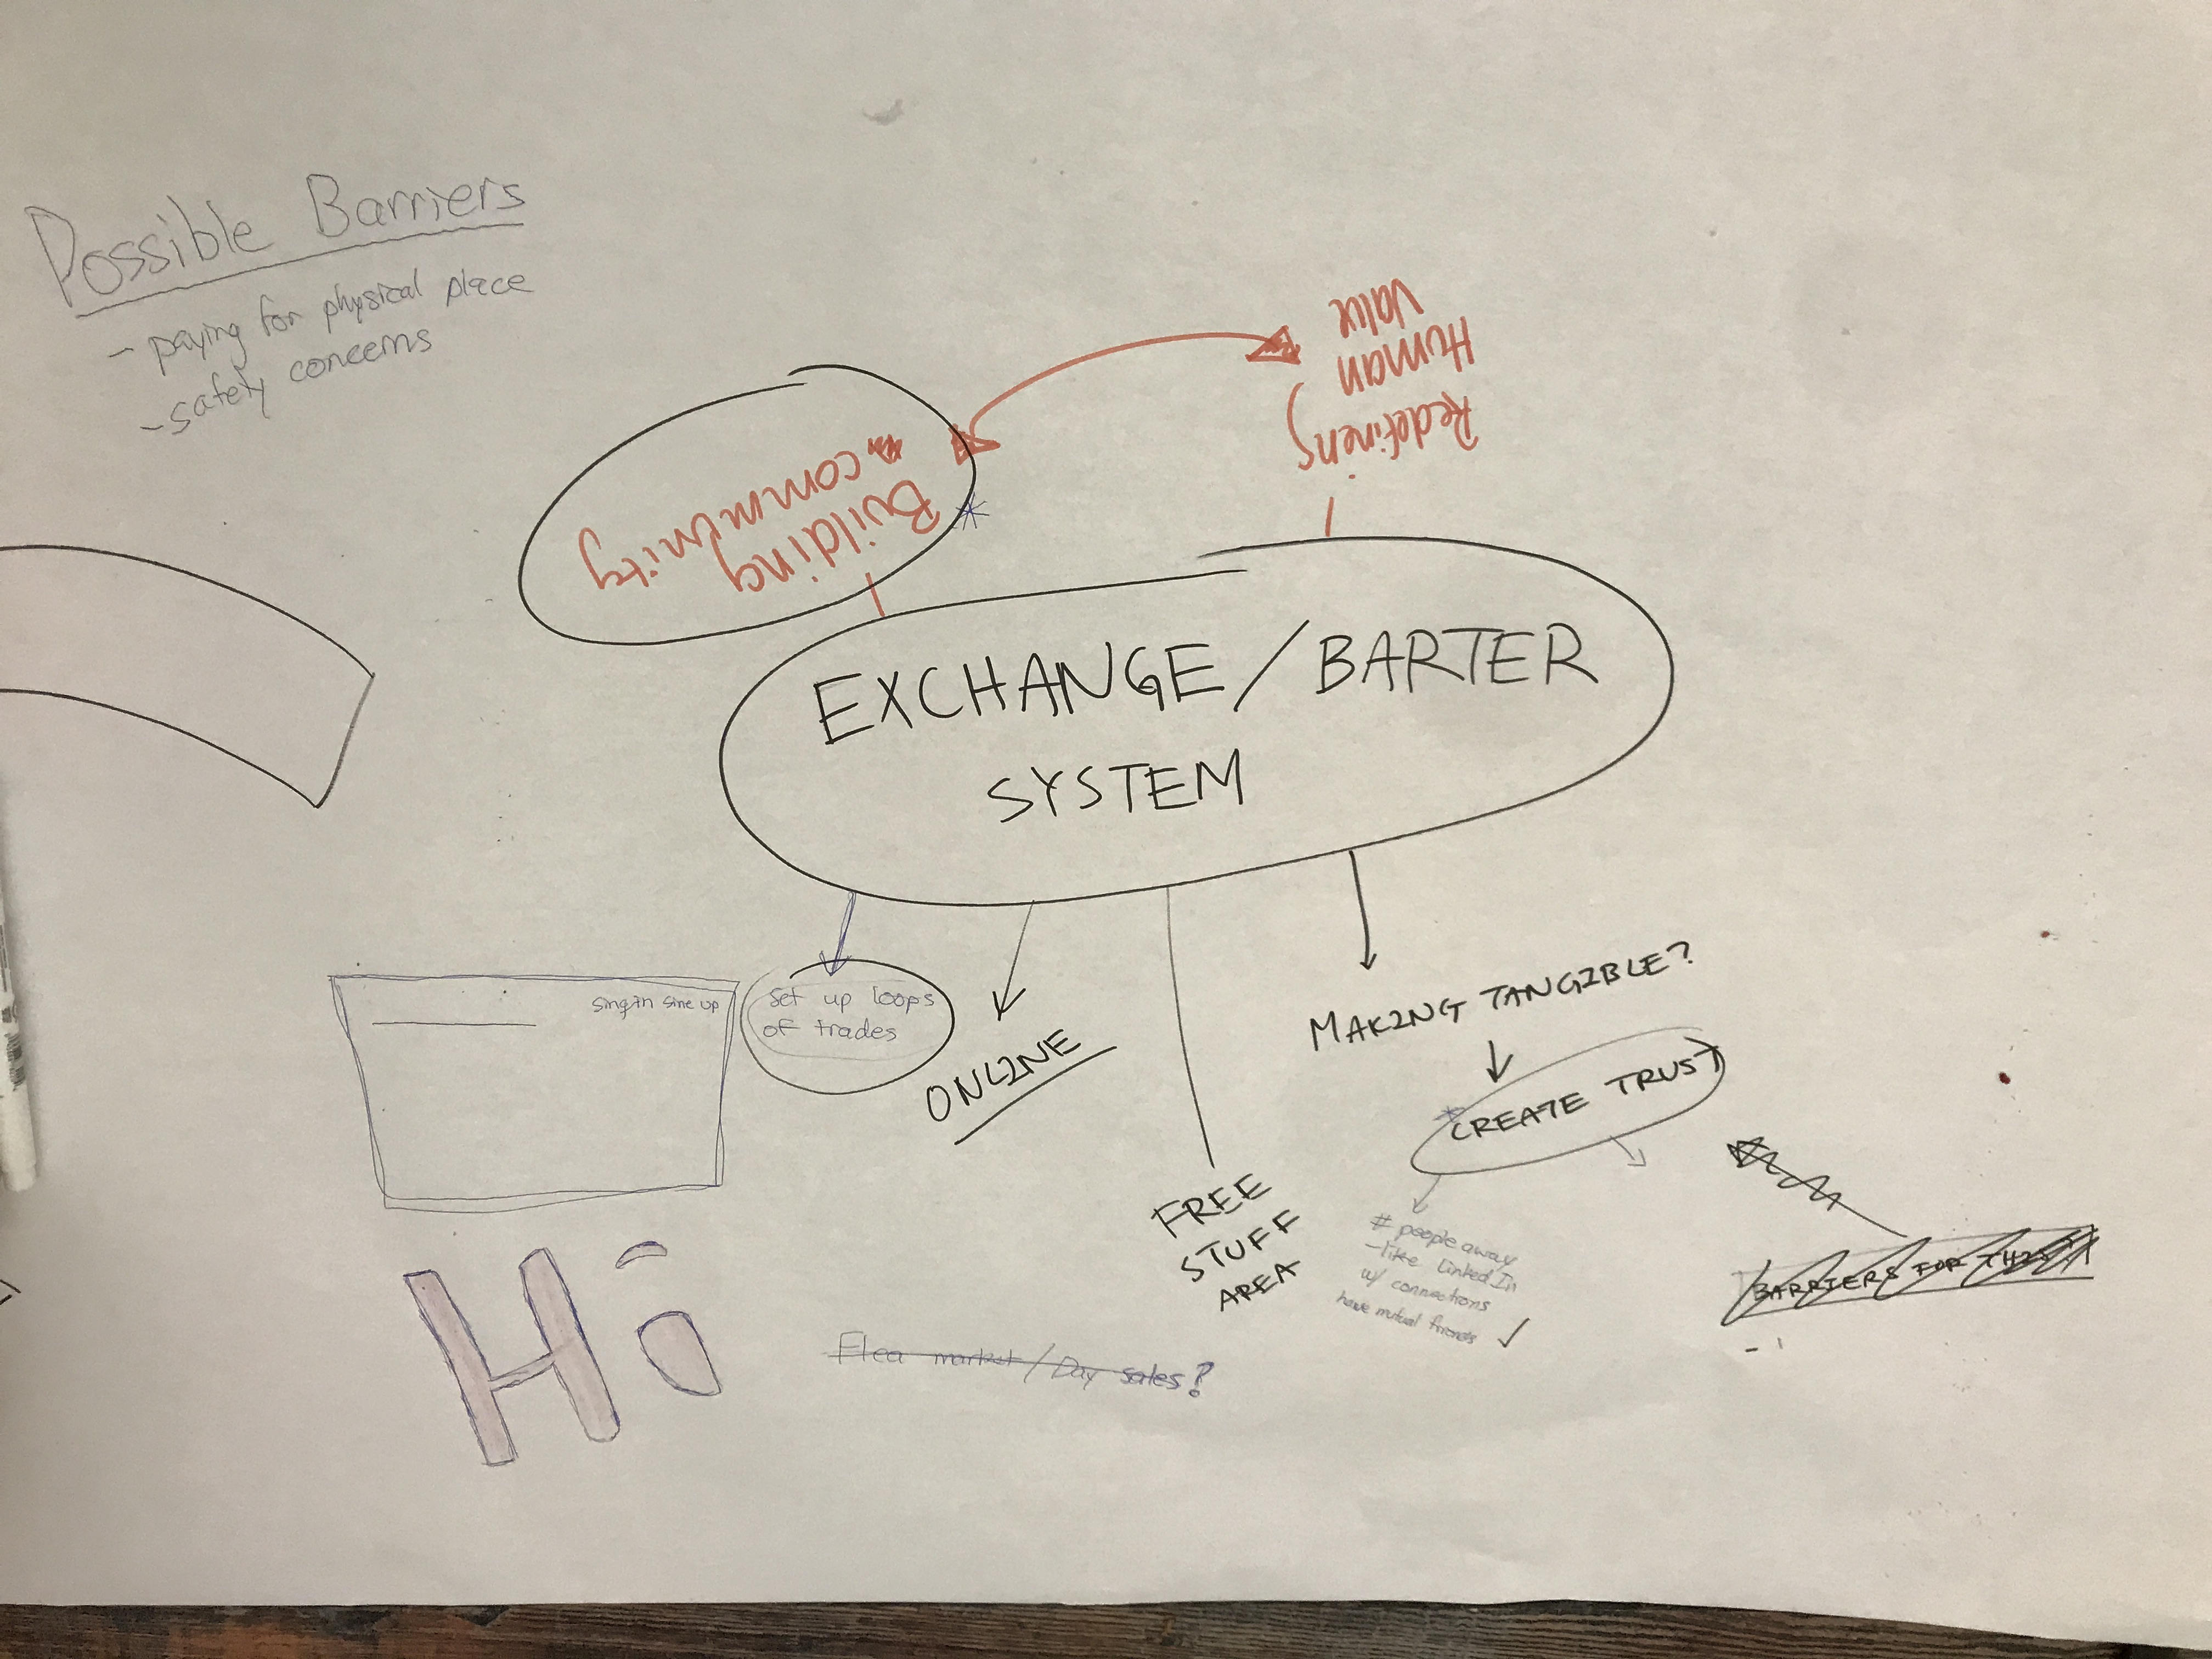 Possible Barriers
- paying for physical place
- safety concerns
Redefining
Human
Value
Building
community
*
EXCHANGE/BARTER
SYSTEM
singin sine up
Set up loops
of trades
ONLINE
FREE
STUFF
AREA
MAKING TANGIBLE?
*CREATE TRUST
# people away
- like LinkedIn
w/ connections
have mutual friends ✓
BARRIERS FOR THIS
-
Flea market/Day sales?
Hi